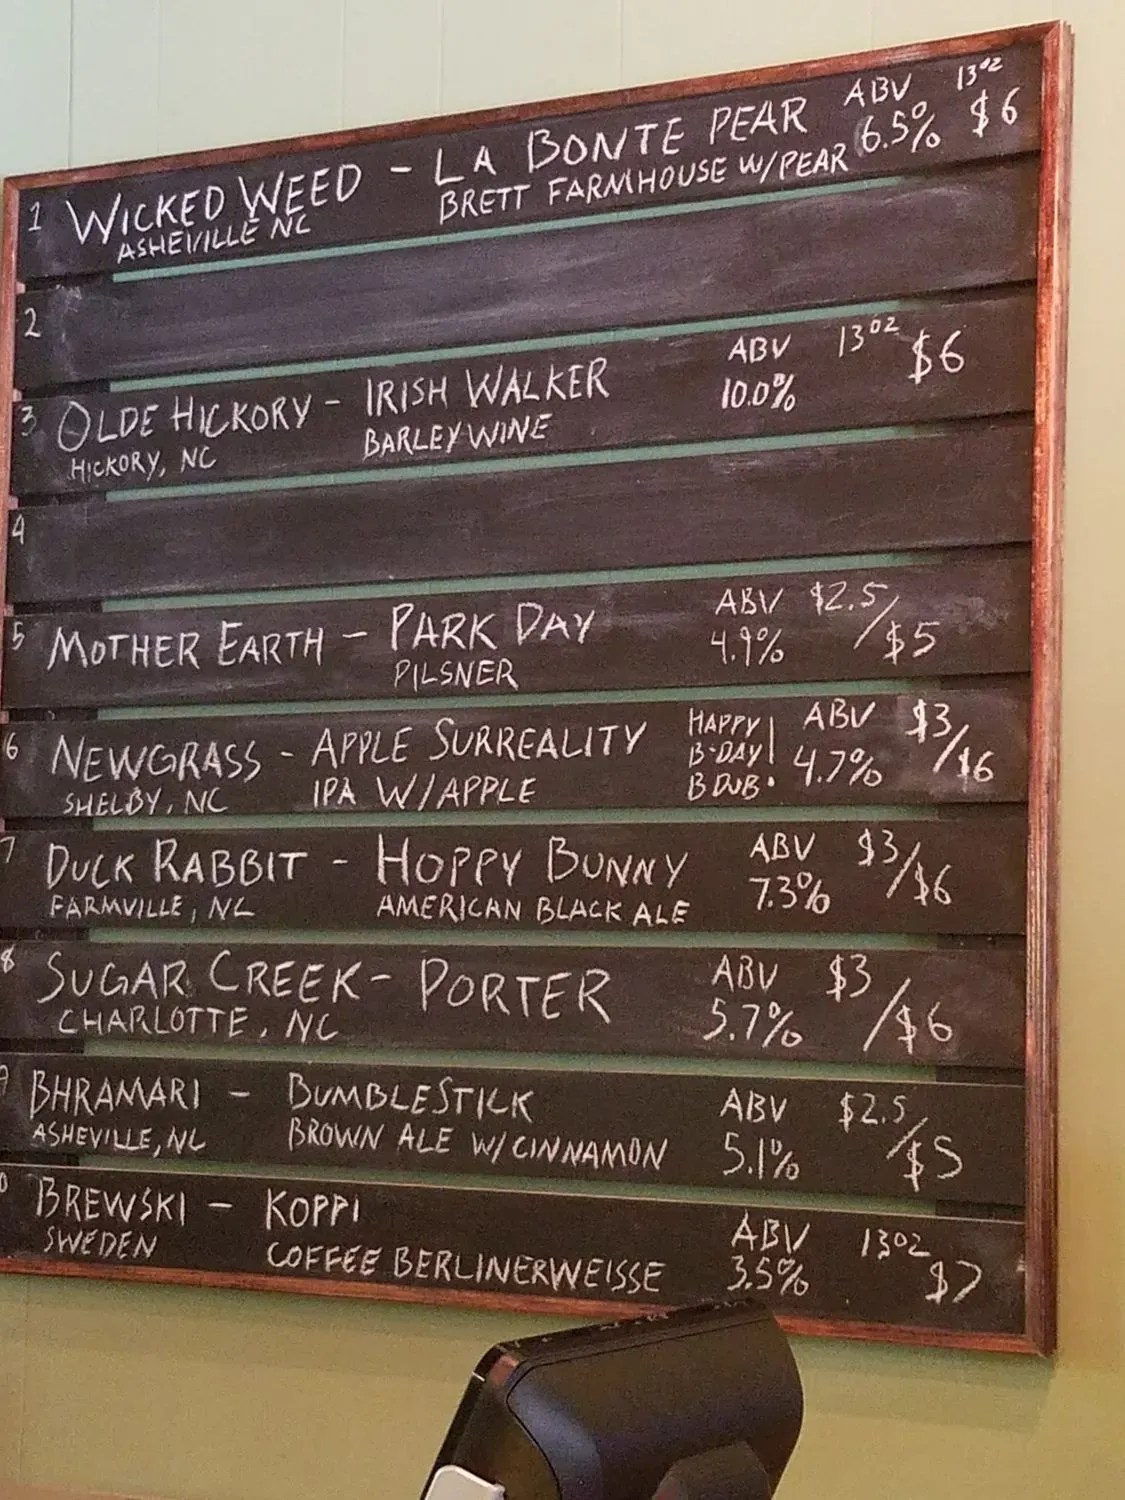 1 WICKED WEED - LA BONTE PEAR ABV 13oz
ASHEVILLE NC BRETT FARMHOUSE W/PEAR 6.5% $6
2
3 OLDE HICKORY - IRISH WALKER ABV 13oz $6
HICKORY, NC BARLEYWINE 10.0%
4
5 MOTHER EARTH - PARK DAY ABV $2.5/$5
PILSNER 4.9%
6 NEWGRASS - APPLE SURREALITY HAPPY ABV $3/$6
B-DAY!
SHELBY, NC IPA W/APPLE B DUB 4.7%
7 DUCK RABBIT - HOPPY BUNNY ABV $3/$6
FARMVILLE, NC AMERICAN BLACK ALE 7.3%
8 SUGAR CREEK - PORTER ABV $3/$6
CHARLOTTE, NC 5.7%
9 BHRAMARI - BUMBLESTICK ABV $2.5/$5
ASHEVILLE, NC BROWN ALE W/CINNAMON 5.1%
0 BREWSKI - KOPPI ABV 13oz
SWEDEN COFFEE BERLINERWEISSE 3.5% $7